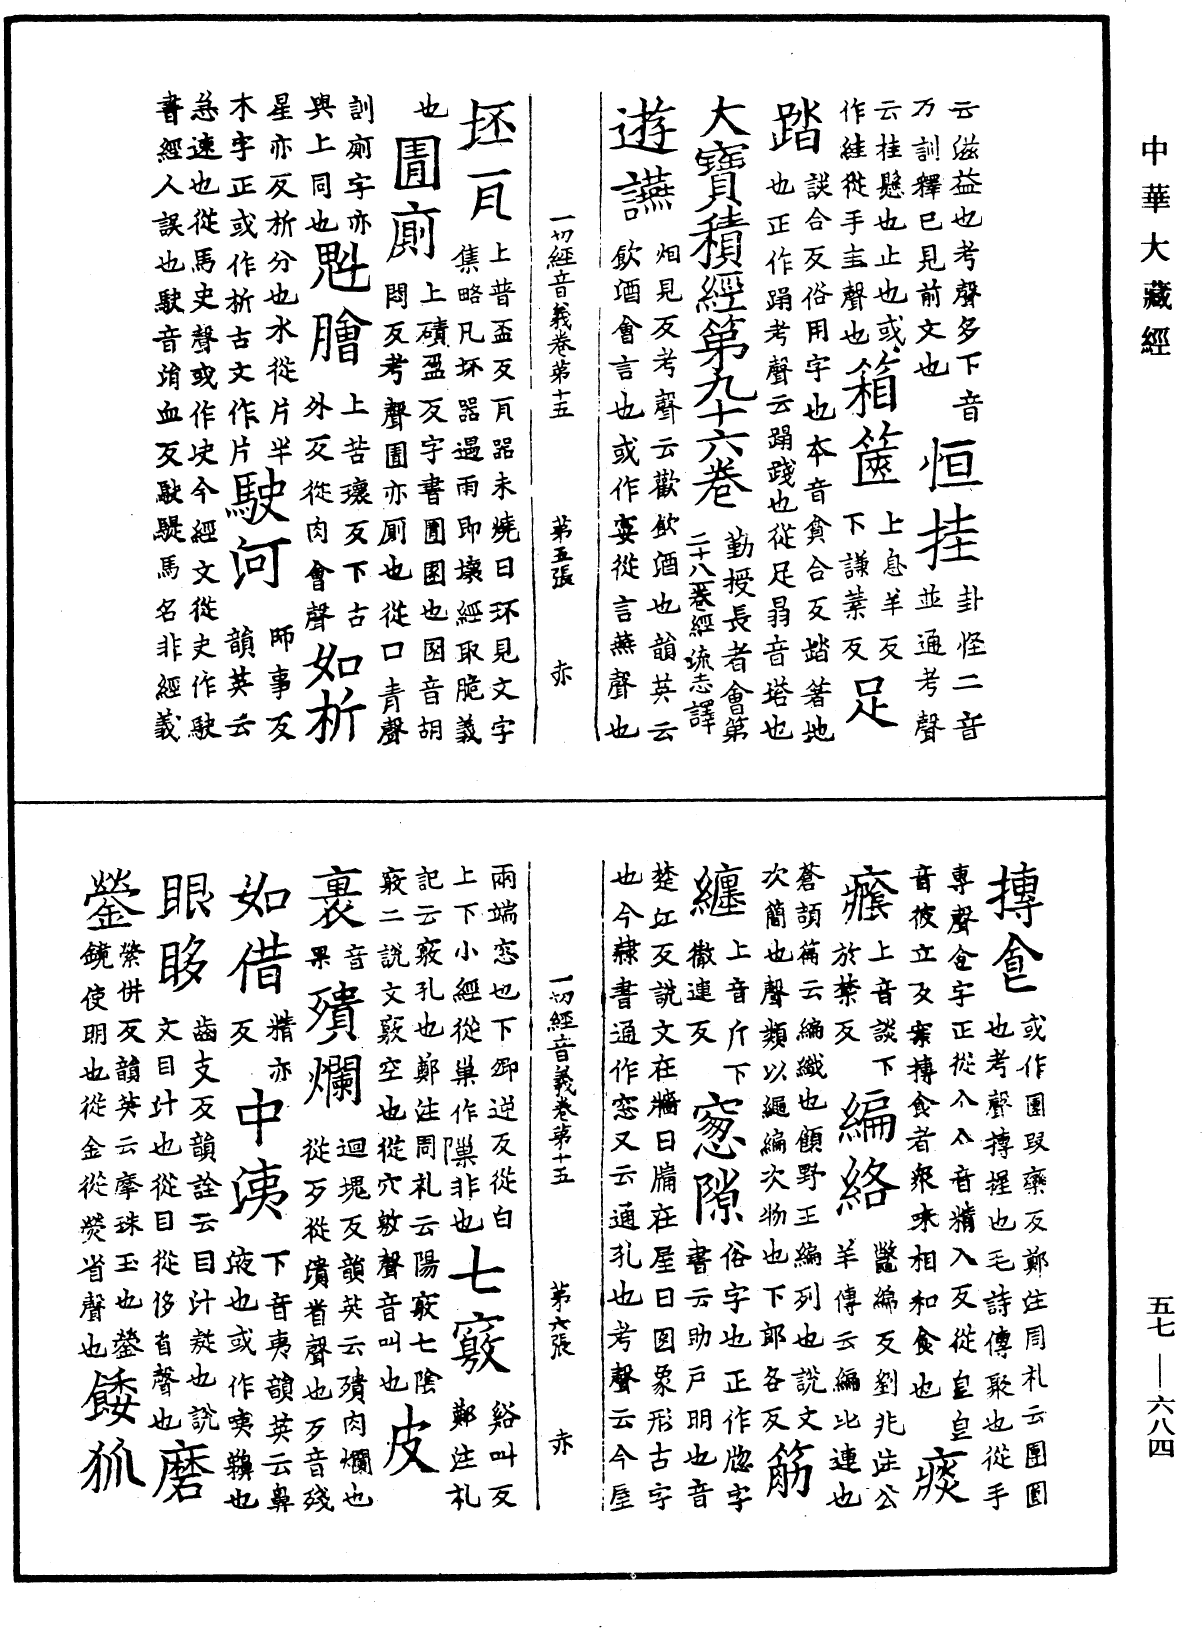 中華大藏經
云滋益也考聲多下音
万訓釋已見前文也
恒挂
卦怪二音
並通考聲
云挂懸也止也或
作絓從手圭聲也
箱篋
上息羊反
下謙葉反
足
踏
談合反俗用字也本音貪合反踏著地
也正作蹋考聲云蹋踐也從足𦐇音塔也
大寶積經第九十六卷
勤授長者會第
二十八一卷經流志譯
遊讌
烟見反考聲云歡飲酒也韻英云
飲酒會言也或作宴從言燕聲也
一切經音義卷第十五 第五張 赤
坯瓦
上普盃反瓦器未燒曰坏見文字
集略凡坏器遇雨即壞經取脆義
也
圊廁
上磧盈反字書圊圂也圂音胡
悶反考聲圊亦廁也從口青聲
訓廁字亦
與上同也
魁膾
上苦瓌反下古
外反從肉會聲
如析
星亦反析分也水從片半
木字正或作析古文作片
駛河
師事反
韻英云
急速也從馬史聲或作𩢲今經文從史作駛
書經人誤也駛音消血反駛騠馬名非經義
摶食
或作團段欒反鄭注周礼云團圓
也考聲摶握也毛詩傳聚也從手
專聲食字正從亼亼音精入反從皀皀
音彼立反案摶食者眾味相和食也
痰
癊
上音談下
於禁反
編絡
鷩綿反劉兆注公
羊傳云編比連也
蒼頡篇云編織也顧野王編列也說文
次簡也聲類以繩編次物也下郎各反
筋
纏
上音斤下
徹連反
窻隙
俗字也正作牕字
書云助戶明也音
楚江反說文在牆曰牖在屋曰囪象形古字
也今隸書通作窓又云通孔也考聲云今屋
一切經音義卷第十五 第六張 赤
兩端窓也下卿逆反從白
上下小經從巢作隟非也
七竅
谿叫反
鄭注礼
記云竅孔也鄭注周礼云陽竅七陰
竅二說文竅空也從穴敫聲音叫也
皮
裹
音
果
殨爛
迴塊反韻英云殨肉爛也
從歹從潰省聲也歹音殘
如借
精亦
反
中洟
下音夷韻英云鼻
液也或作㖒𪖫也
眼眵
齒支反韻詮云目汁凝也說
文目汁也從目從侈省聲也
磨
鎣
縈併反韻英云摩珠玉也鎣
鏡使明也從金從熒省聲也
餧狐
五七—六八四